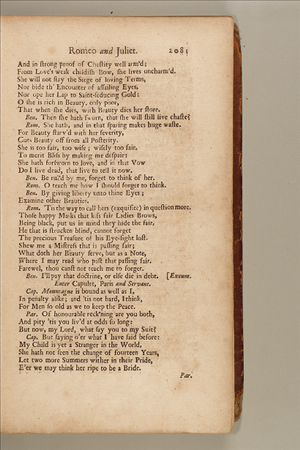 Romeo and Juliet. 2081
And in strong proof of Chastity well arm'd;
From Love's weak childish Bow, she lives uncharm'd.
She will not stay the Siege of loving Terms,
Nor bide th' Encounter of assailing Eyes,
Nor ope her Lap to Saint-seducing Gold:
O she is rich in Beauty, only poor,
That when she dies, with Beauty dies her store.
Ben. Then she hath sworn, that she will still live chaste?
Rom. She hath, and in that sparing makes huge waste.
For Beauty starv'd with her severity,
Cuts Beauty off from all Posterity.
She is too fair, too wise; wisely too fair,
To merit Bliss by making me despair:
She hath forsworn to love, and in that Vow
Do I live dead, that live to tell it now.
Ben. Be rul'd by me, forget to think of her.
Rom. O teach me how I should forget to think.
Ben. By giving liberty unto thine Eyes;
Examine other Beauties.
Rom. 'Tis the way to call hers (exquisite) in question more.
Those happy Masks that kiss fair Ladies Brows,
Being black, put us in mind they hide the fair,
He that is strucken blind, cannot forget
The precious Treasure of his Eye-sight lost.
Shew me a Mistress that is passing fair;
What doth her Beauty serve, but as a Note,
Where I may read who past that passing fair.
Farewel, thou canst not teach me to forget.
Ben. I'll pay that doctrine, or else die in debt. [Exeunt.
Enter Capulet, Paris and Servant.
Cap. Mountague is bound as well as I,
In penalty alike; and 'tis not hard, I think,
For Men so old as we to keep the Peace.
Par. Of honourable reck'ning are you both,
And pity 'tis you liv'd at odds so long:
But now, my Lord, what say you to my Suit?
Cap. But saying o'er what I have said before:
My Child is yet a Stranger in the World,
She hath not seen the change of fourteen Years,
Let two more Summers wither in their Pride,
E'er we may think her ripe to be a Bride.
Par.